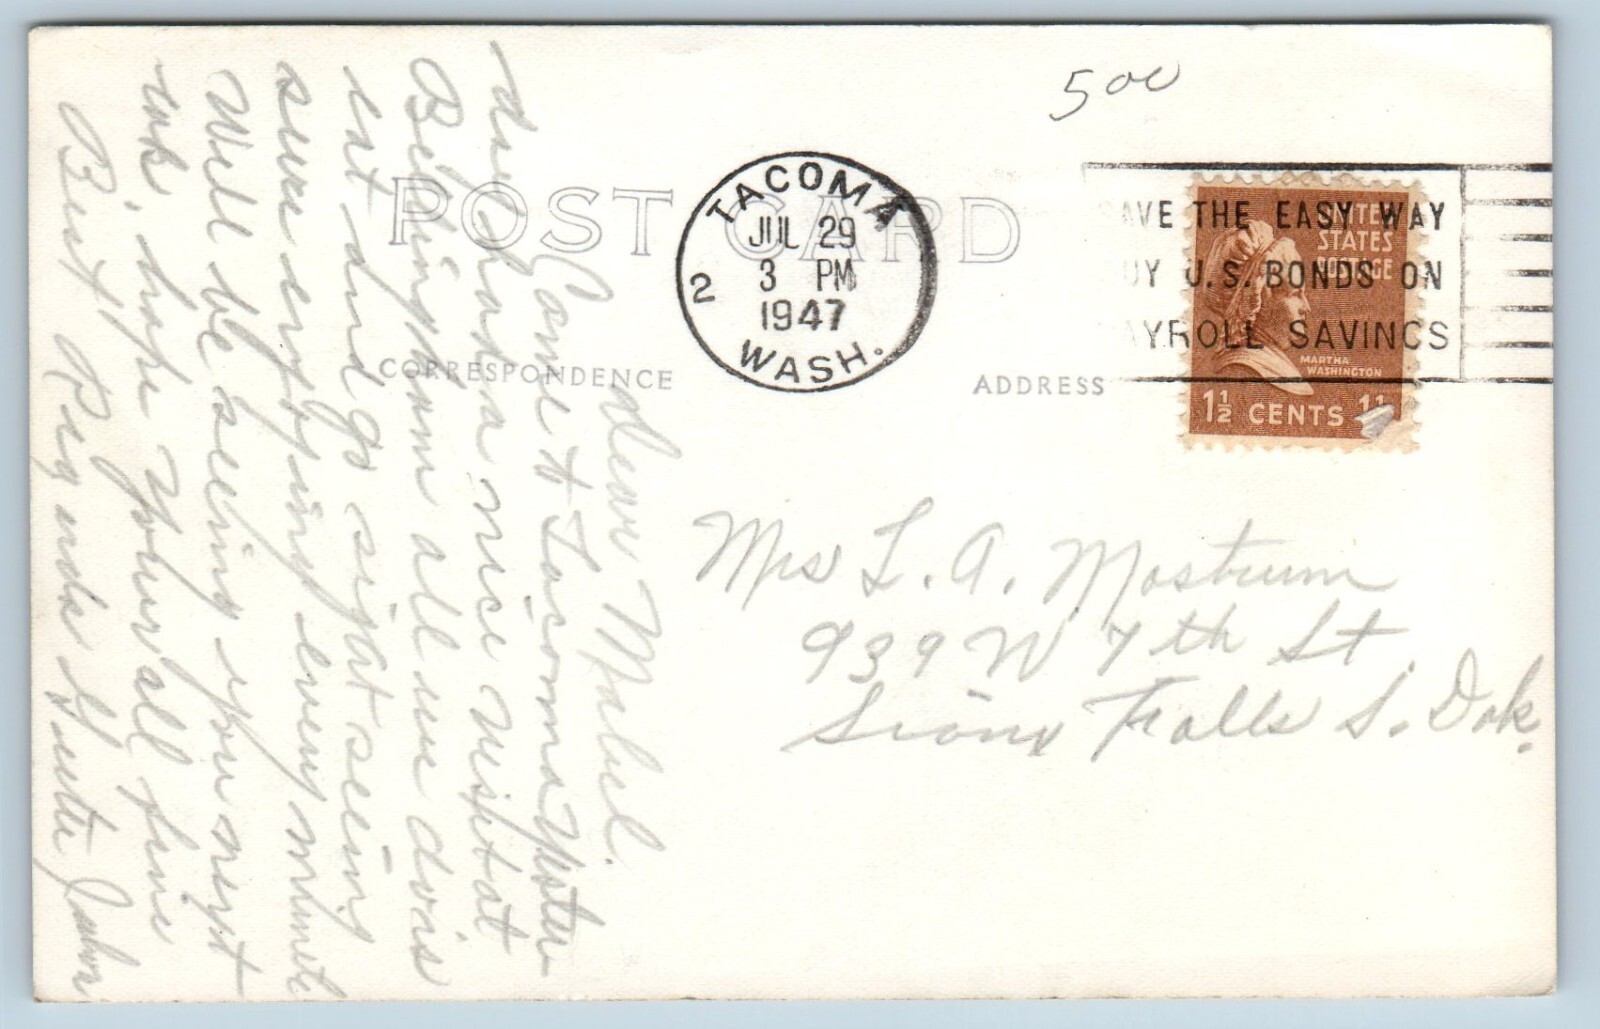 500
POST CARD
TACOMA
JUL 29
3 PM
1947
2
WASH.
SAVE THE EASY WAY
BUY U.S. BONDS ON
PAYROLL SAVINGS
UNITED
STATES
POSTAGE
MARTHA
WASHINGTON
1½ CENTS 1½
CORRESPONDENCE
ADDRESS
Dear Mabel.
Came to Tacoma
and had a nice visit at
Bellingham all
eat and go sight seeing
sure enjoying every minute
Will be seeing you next
wk, hope your all fine
Best
Mrs L. A. Mostrum
939 W 7th St
Sioux Falls S. Dak.